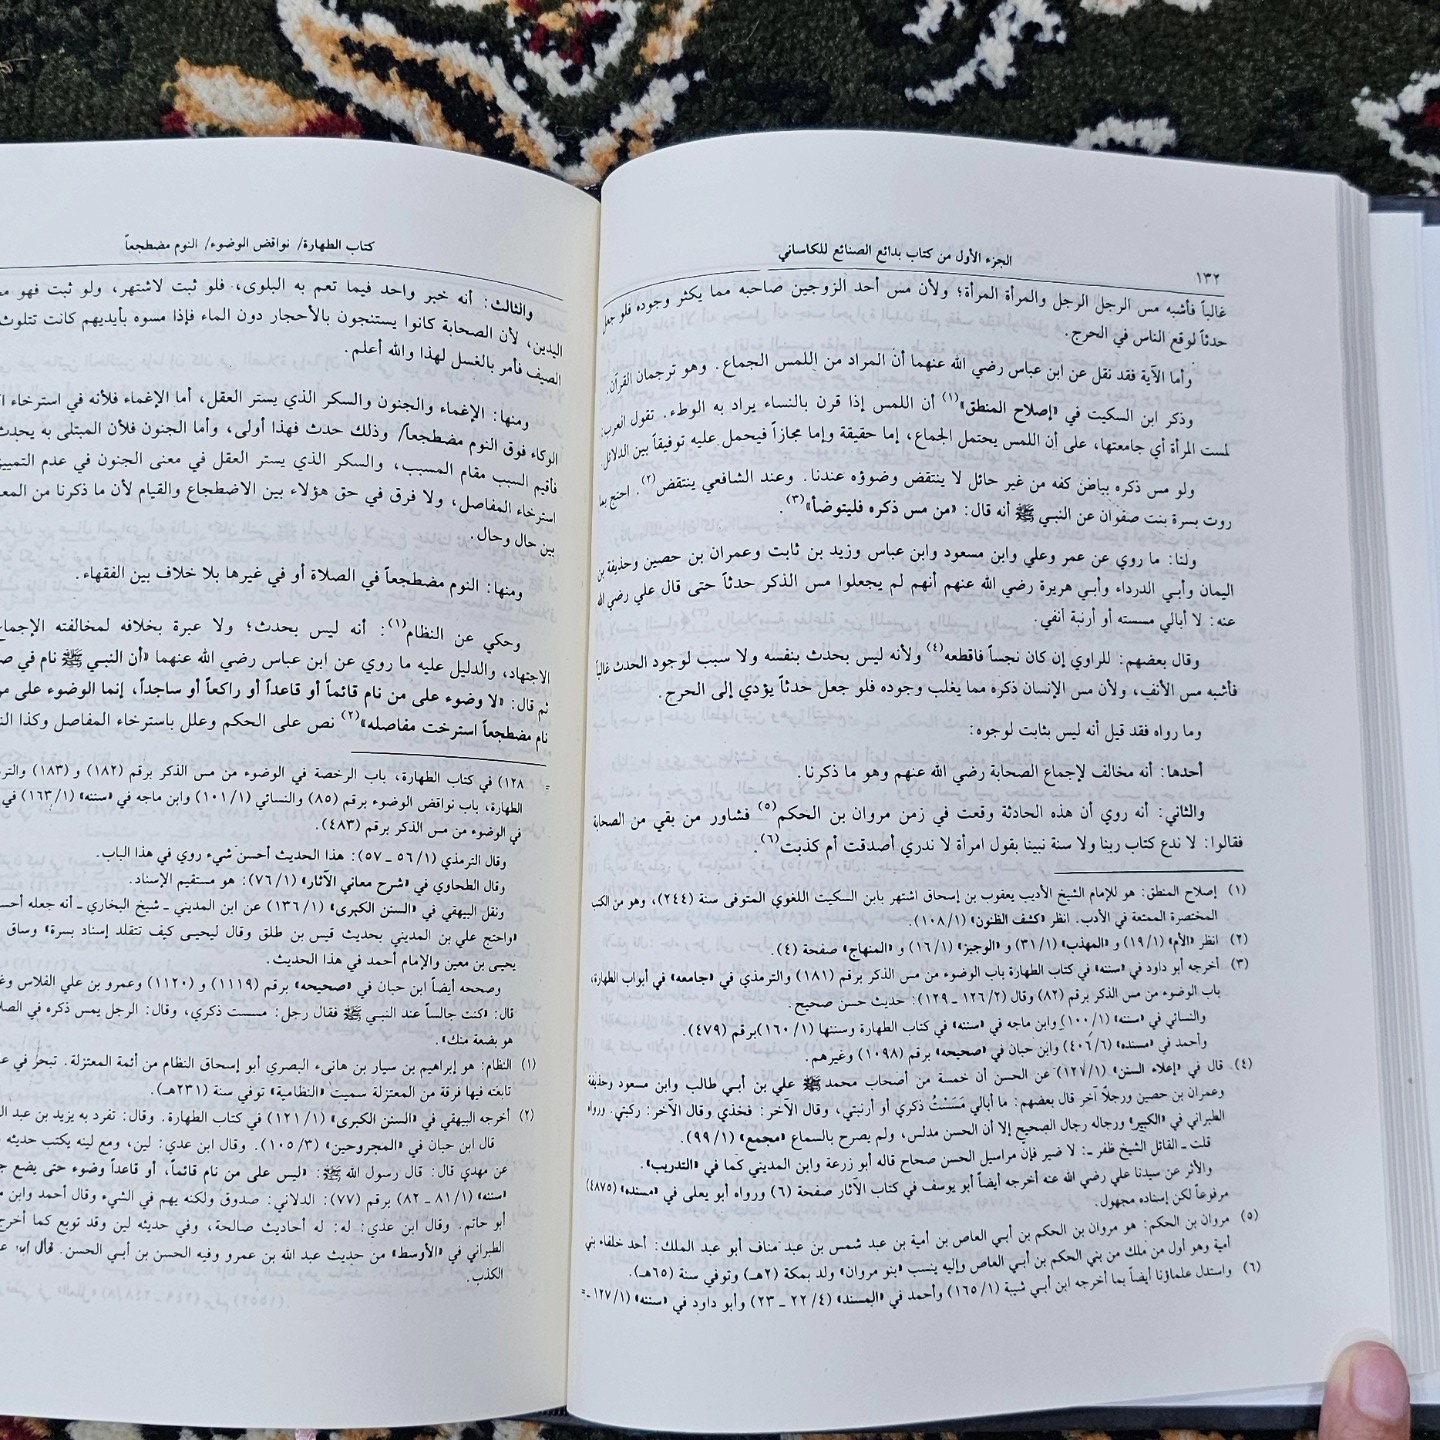 ١٣٢
الجزء الأول من كتاب بدائع الصنائع للكاساني
غالباً فأشبه مس الرجل الرجل والمرأة المرأة؛ ولأن مس أحد الزوجين صاحبه مما يكثر وجوده فلو جعل
حدثاً لوقع الناس في الحرج.
وأما الآية فقد نقل عن ابن عباس رضي الله عنهما أن المراد من اللمس الجماع. وهو ترجمان القرآن.
وذكر ابن السكيت في «إصلاح المنطق»(١) أن اللمس إذا قرن بالنساء يراد به الوطء. تقول العرب:
لمست المرأة أي جامعتها، على أن اللمس يحتمل الجماع، إما حقيقة وإما مجازاً فيحمل عليه توفيقاً بين الدلائل.
ولو مس ذكره بباطن كفه من غير حائل لا ينتقض وضوؤه عندنا. وعند الشافعي ينتقض(٢). احتج بما
روت بسرة بنت صفوان عن النبي ﷺ أنه قال: «من مس ذكره فليتوضأ»(٣).
ولنا: ما روي عن عمر وعلي وابن مسعود وابن عباس وزيد بن ثابت وعمران بن حصين وحذيفة بن
اليمان وأبي الدرداء وأبي هريرة رضي الله عنهم أنهم لم يجعلوا مس الذكر حدثاً حتى قال علي رضي الله
عنه: لا أبالي مسسته أو أرنبة أنفي.
وقال بعضهم: للراوي إن كان نجساً فاقطعه(٤) ولأنه ليس بحدث بنفسه ولا سبب لوجود الحدث غالباً
فأشبه مس الأنف، ولأن مس الإنسان ذكره مما يغلب وجوده فلو جعل حدثاً يؤدي إلى الحرج.
وما رواه فقد قيل أنه ليس بثابت لوجوه:
أحدها: أنه مخالف لإجماع الصحابة رضي الله عنهم وهو ما ذكرنا.
والثاني: أنه روي أن هذه الحادثة وقعت في زمن مروان بن الحكم(٥) فشاور من بقي من الصحابة
فقالوا: لا ندع كتاب ربنا ولا سنة نبينا بقول امرأة لا ندري أصدقت أم كذبت(٦).
(١) إصلاح المنطق: هو للإمام الشيخ الأديب يعقوب بن إسحاق اشتهر بابن السكيت اللغوي المتوفى سنة (٢٤٤)، وهو من الكتب
المختصرة الممتعة في الأدب. انظر «كشف الظنون» (١٠٨/١).
(٢) انظر «الأم» (١٩/١) و «المهذب» (٣١/١) و «الوجيز» (١٦/١) و «المنهاج» صفحة (٤).
(٣) أخرجه أبو داود في «سننه» في كتاب الطهارة باب الوضوء من مس الذكر برقم (١٨١) والترمذي في «جامعه» في أبواب الطهارة،
باب الوضوء من مس الذكر برقم (٨٢) وقال (١٢٦/٢ ـ ١٢٩): حديث حسن صحيح.
والنسائي في «سننه» (١٠٠/١) وابن ماجه في «سننه» في كتاب الطهارة وسننها (١٦٠/١)برقم (٤٧٩).
وأحمد في «مسنده» (٤٠٦/٦) وابن حبان في «صحيحه» برقم (١٠٩٨) وغيرهم.
(٤) قال في «إعلاء السنن» (١٢٧/١) عن الحسن أن خمسة من أصحاب محمد ﷺ علي بن أبي طالب وابن مسعود وحذيفة
وعمران بن حصين ورجلاً آخر قال بعضهم: ما أبالي مَسَسْتُ ذكري أو أرنبتي، وقال الآخر: فخذي وقال الآخر: ركبتي. ورواه
الطبراني في «الكبير» ورجاله رجال الصحيح إلا أن الحسن مدلس، ولم يصرح بالسماع «مجمع» (٩٩/١).
قلت ـ القائل الشيخ ظفر ـ: لا ضير فإن مراسيل الحسن صحاح قاله أبو زرعة وابن المديني كما في «التدريب».
والأثر عن سيدنا علي رضي الله عنه أخرجه أيضاً أبو يوسف في كتاب الآثار صفحة (٦) ورواه أبو يعلى في «مسنده» (٤٨٧٥)
مرفوعاً لكن إسناده مجهول.
(٥) مروان بن الحكم: هو مروان بن الحكم بن أبي العاص بن أمية بن عبد شمس بن عبد مناف أبو عبد الملك: أحد خلفاء بني
أمية وهو أول من ملك من بني الحكم بن أبي العاص وإليه ينسب «بنو مروان» ولد بمكة (٢هـ) وتوفي سنة (٦٥هـ).
(٦) واستدل علماؤنا أيضاً بما أخرجه ابن أبي شيبة (١٦٥/١) وأحمد في «المسند» (٢٢/٤ ـ ٢٣) وأبو داود في «سننه» (١٢٧/١ ـ =
كتاب الطهارة/ نواقض الوضوء/ النوم مضطجعاً
والثالث: أنه خبر واحد فيما تعم به البلوى، فلو ثبت لاشتهر، ولو ثبت فهو
اليدين، لأن الصحابة كانوا يستنجون بالأحجار دون الماء فإذا مسوه بأيديهم كانت تتلوث
الصيف فأمر بالغسل لهذا والله أعلم.
ومنها: الإغماء والجنون والسكر الذي يستر العقل، أما الإغماء فلأنه في استرخاء
الوكاء فوق النوم مضطجعاً/ وذلك حدث فهذا أولى، وأما الجنون فلأن المبتلى به يحدث
فأقيم السبب مقام المسبب، والسكر الذي يستر العقل في معنى الجنون في عدم التمييز
استرخاء المفاصل، ولا فرق في حق هؤلاء بين الاضطجاع والقيام لأن ما ذكرنا من
بين حال وحال.
ومنها: النوم مضطجعاً في الصلاة أو في غيرها بلا خلاف بين الفقهاء.
وحكي عن النظام(١): أنه ليس بحدث؛ ولا عبرة بخلافه لمخالفته الإجماع
الاجتهاد، والدليل عليه ما روي عن ابن عباس رضي الله عنهما «أن النبي ﷺ نام في
ثم قال: «لا وضوء على من نام قائماً أو قاعداً أو راكعاً أو ساجداً، إنما الوضوء على
نام مضطجعاً استرخت مفاصله»(٢) نص على الحكم وعلل باسترخاء المفاصل وكذا
= ١٢٨) في كتاب الطهارة، باب الرخصة في الوضوء من مس الذكر برقم (١٨٢) و (١٨٣)
الطهارة، باب نواقض الوضوء برقم (٨٥) والنسائي (١٠١/١) وابن ماجه في «سننه» (١٦٣/١) في
في الوضوء من مس الذكر برقم (٤٨٣).
وقال الترمذي (٥٦/١ ـ ٥٧): هذا الحديث أحسن شيء روي في هذا الباب.
وقال الطحاوي في «شرح معاني الآثار» (٧٦/١): هو مستقيم الإسناد.
ونقل البيهقي في «السنن الكبرى» (١٣٦/١) عن ابن المديني ـ شيخ البخاري ـ أنه جعله
«واحتج علي بن المديني بحديث قيس بن طلق وقال ليحيى كيف تتقلد إسناد بسرة» وساق
يحيى بن معين والإمام أحمد في هذا الحديث.
وصححه أيضاً ابن حبان في «صحيحه» برقم (١١١٩) و (١١٢٠) وعمرو بن علي الفلاس
قال: «كنت جالساً عند النبي ﷺ فقال رجل: مسست ذكري، وقال: الرجل يمس ذكره في
هو بضعة منك».
(١) النظام: هو إبراهيم بن سيار بن هانىء البصري أبو إسحاق النظام من أئمة المعتزلة. تبحر في
تابعته فيها فرقة من المعتزلة سميت «النظامية» توفي سنة (٢٣١هـ).
(٢) أخرجه البيهقي في «السنن الكبرى» (١٢١/١) في كتاب الطهارة. وقال: تفرد به يزيد بن عبد
قال ابن حبان في «المجروحين» (١٠٥/٣). وقال ابن عدي: لين، ومع لينه يكتب حديثه
عن مهدي قال: قال رسول الله ﷺ: «ليس على من نام قائماً، أو قاعداً وضوء حتى يضع
«سننه» (٨١/١ ـ ٨٢) برقم (٧٧): الدلاني: صدوق ولكنه يهم في الشيء وقال أحمد وابن
أبو حاتم. وقال ابن عدي: له: له أحاديث صالحة، وفي حديثه لين وقد توبع كما أخرج
الطبراني في «الأوسط» من حديث عبد الله بن عمرو وفيه الحسن بن أبي الحسن. قال
الكذب.